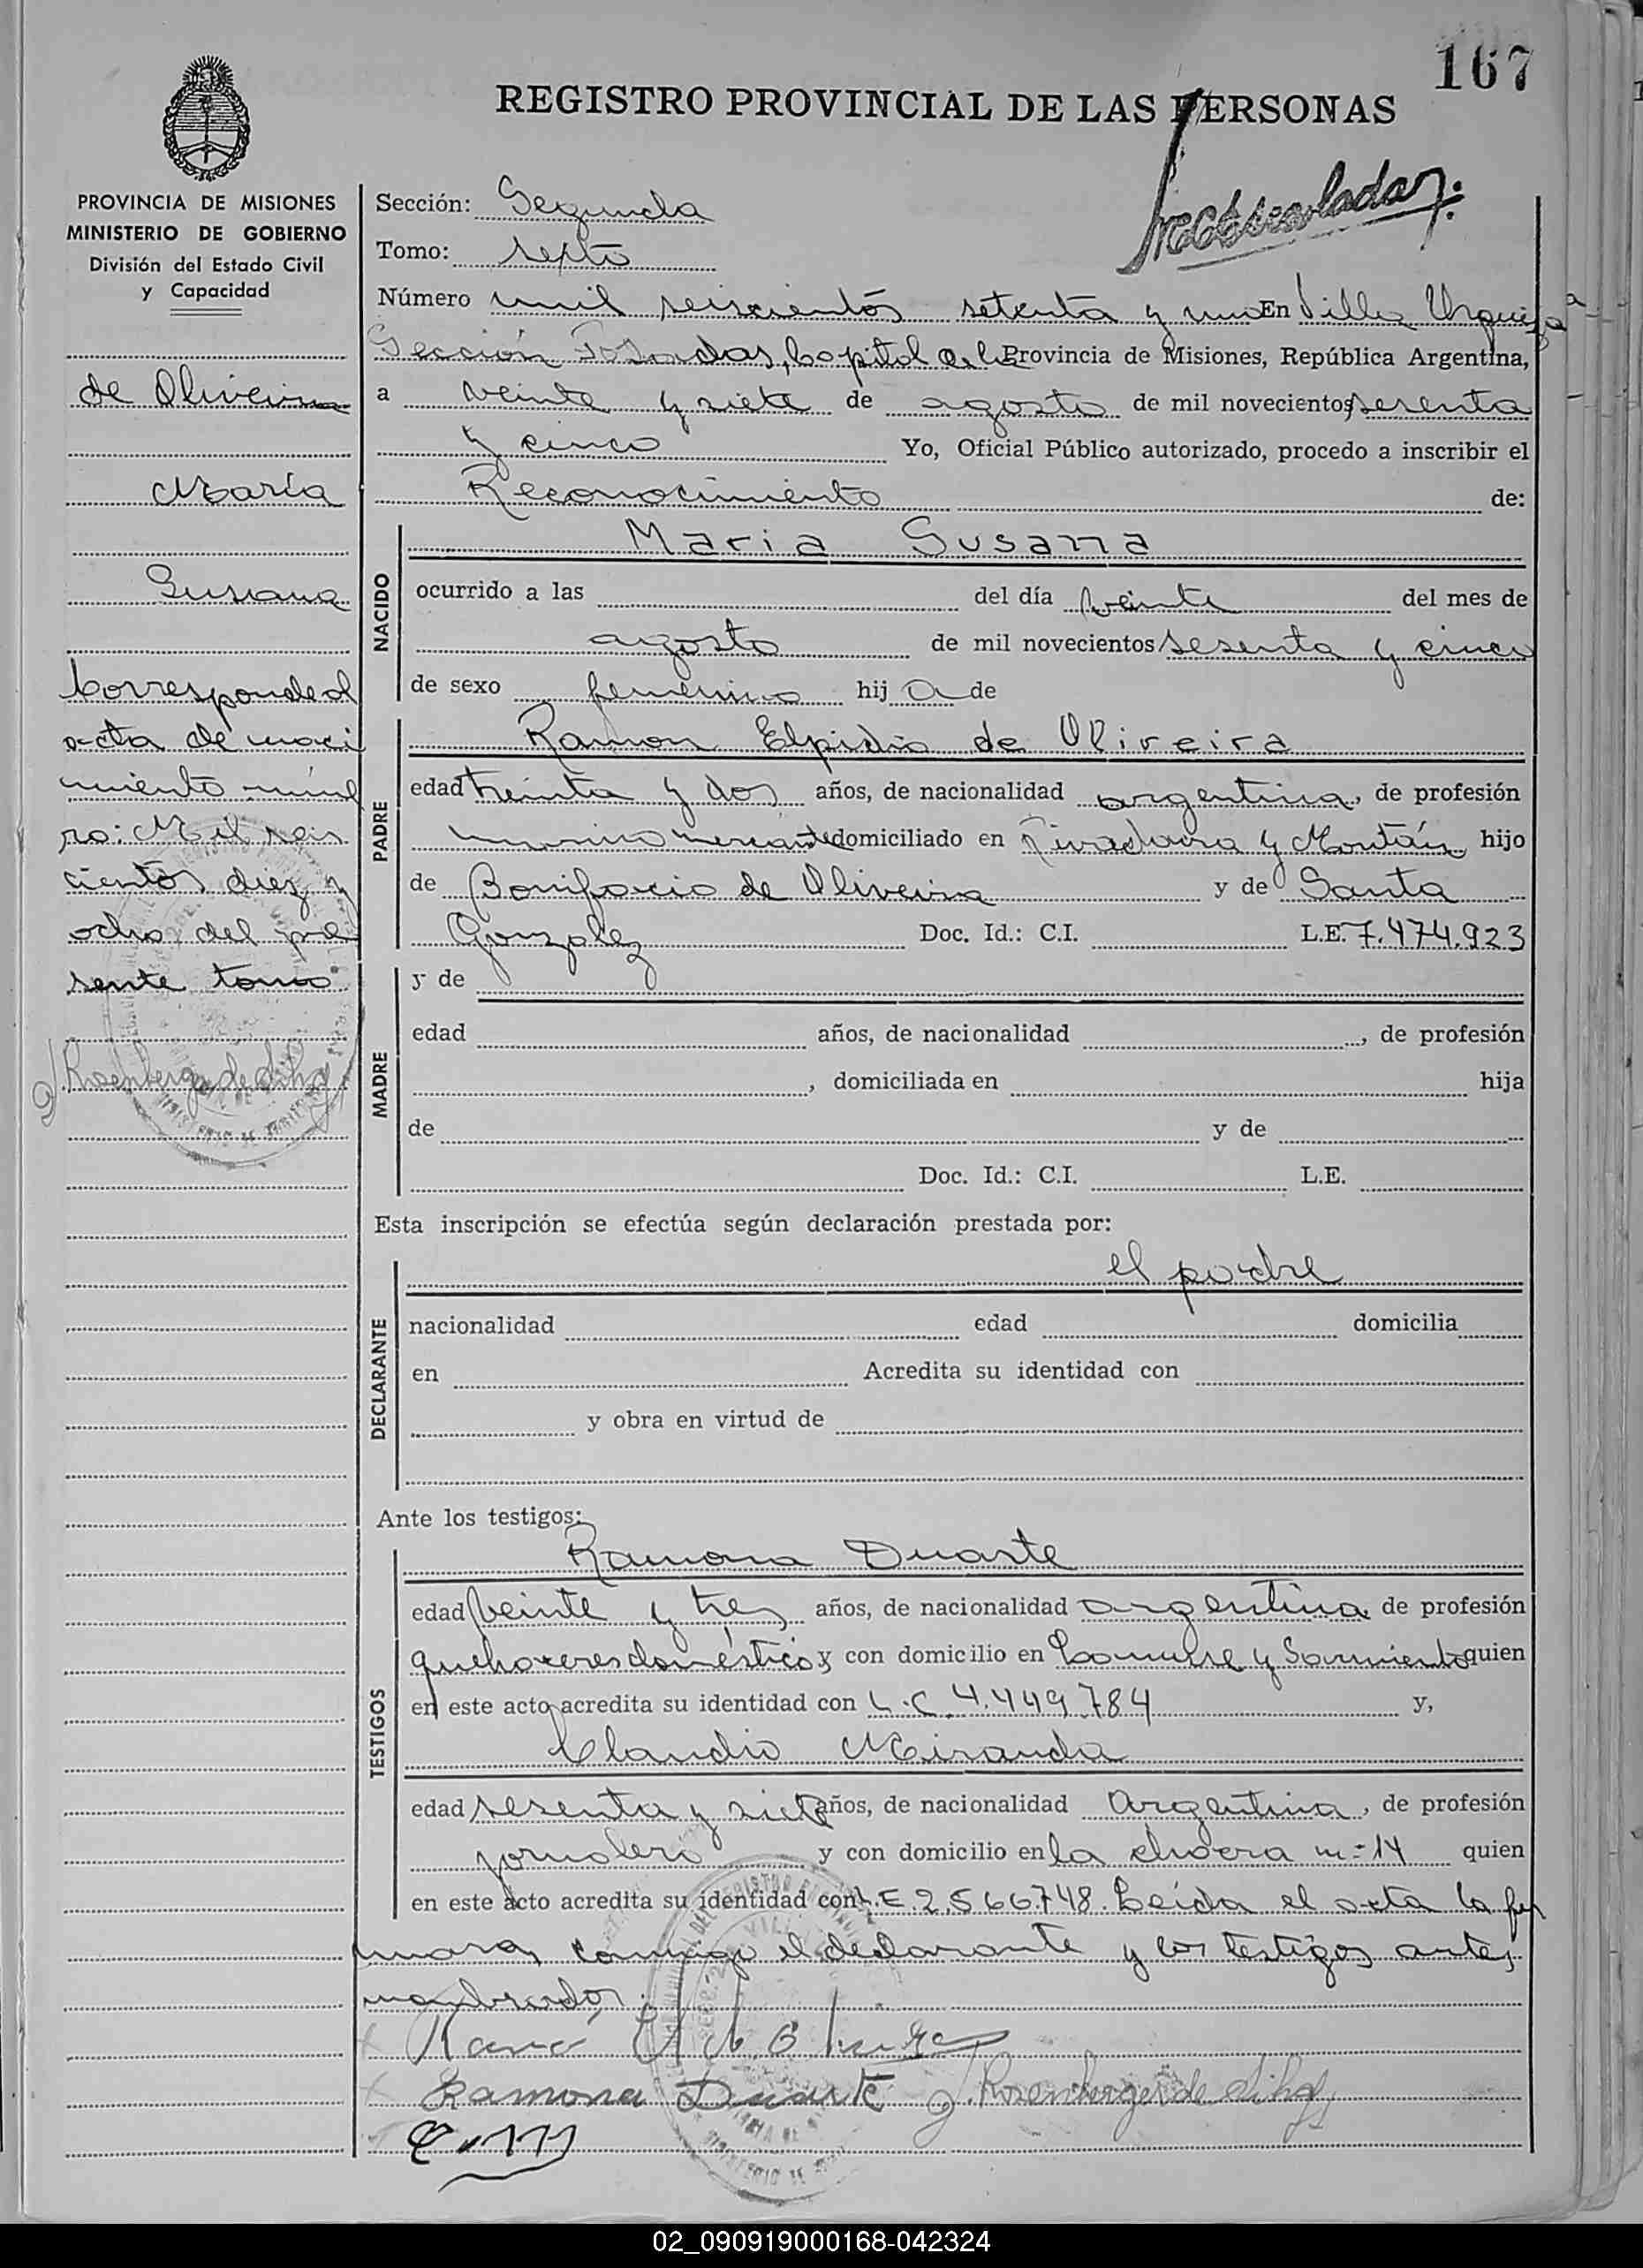 167
REGISTRO PROVINCIAL DE LAS PERSONAS
PROVINCIA DE MISIONES
MINISTERIO DE GOBIERNO
División del Estado Civil
y Capacidad
de Oliveira
María
Susana
Corresponde al
acta de naci
miento núme
ro: Mil seis
cientos diez y
ocho del pre
sente tomo.
Sección: Segunda
Tomo: sexto
Número mil seiscientos setenta y uno En Villa Urquiza
Sección Posadas, Capital de la Provincia de Misiones, República Argentina,
a veinte y siete de agosto de mil novecientos sesenta
y cinco Yo, Oficial Público autorizado, procedo a inscribir el
Reconocimiento de:
NACIDO
Maria Susana
ocurrido a las del día veinte del mes de
agosto de mil novecientos sesenta y cinco
de sexo femenino hij a de
PADRE
Ramon Elpidio de Oliveira
edad treinta y dos años, de nacionalidad argentina, de profesión
marino mercante domiciliado en Rivadavia y hijo
de Bonifacio de Oliveira y de Santa
Gonzalez Doc. Id.: C.I. L.E. 7.474.923
MADRE
y de
edad años, de nacionalidad , de profesión
, domiciliada en hija
de y de
Doc. Id.: C.I. L.E.
Esta inscripción se efectúa según declaración prestada por:
DECLARANTE
el padre
nacionalidad edad domicilia
en Acredita su identidad con
y obra en virtud de
Ante los testigos:
TESTIGOS
Ramona Duarte
edad veinte y tres años, de nacionalidad argentina, de profesión
quehaceres domésticos y con domicilio en y Sarmiento quien
en este acto acredita su identidad con L.C. 4.449.784 y,
Claudio Miranda
edad sesenta y siete años, de nacionalidad Argentina, de profesión
jornalero y con domicilio en la chacra nº 14 quien
en este acto acredita su identidad con L.E. 2.566.748. Leída el acta la fir
maron conmigo el declarante y los testigos antes
nombrados.
Ramona Duarte
02_090919000168-042324